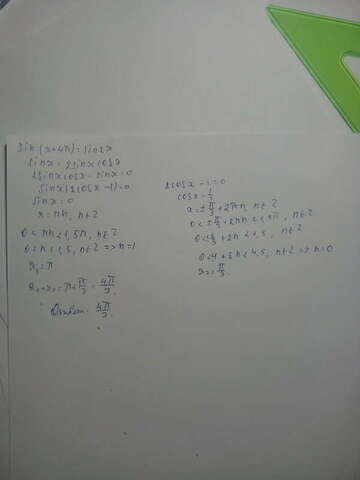 sin(x+4π)=sin2x
sinx=2sinxcosx
2sinxcosx-sinx=0
sinx(2cosx-1)=0
sinx=0
x=πn, n∈Z
0<πn<1,5π, n∈Z
0<n<1,5, n∈Z => n=1
x₁=π
x₁+x₂=π+π/3=4π/3
Ответ: 4π/3.
2cosx-1=0
cosx=1/2
x=±π/3+2πn, n∈Z
0<±π/3+2πn<1,5π, n∈Z
+2n<1,5, n∈Z
n<4,5, n∈Z => n=0
x₂=π/3.